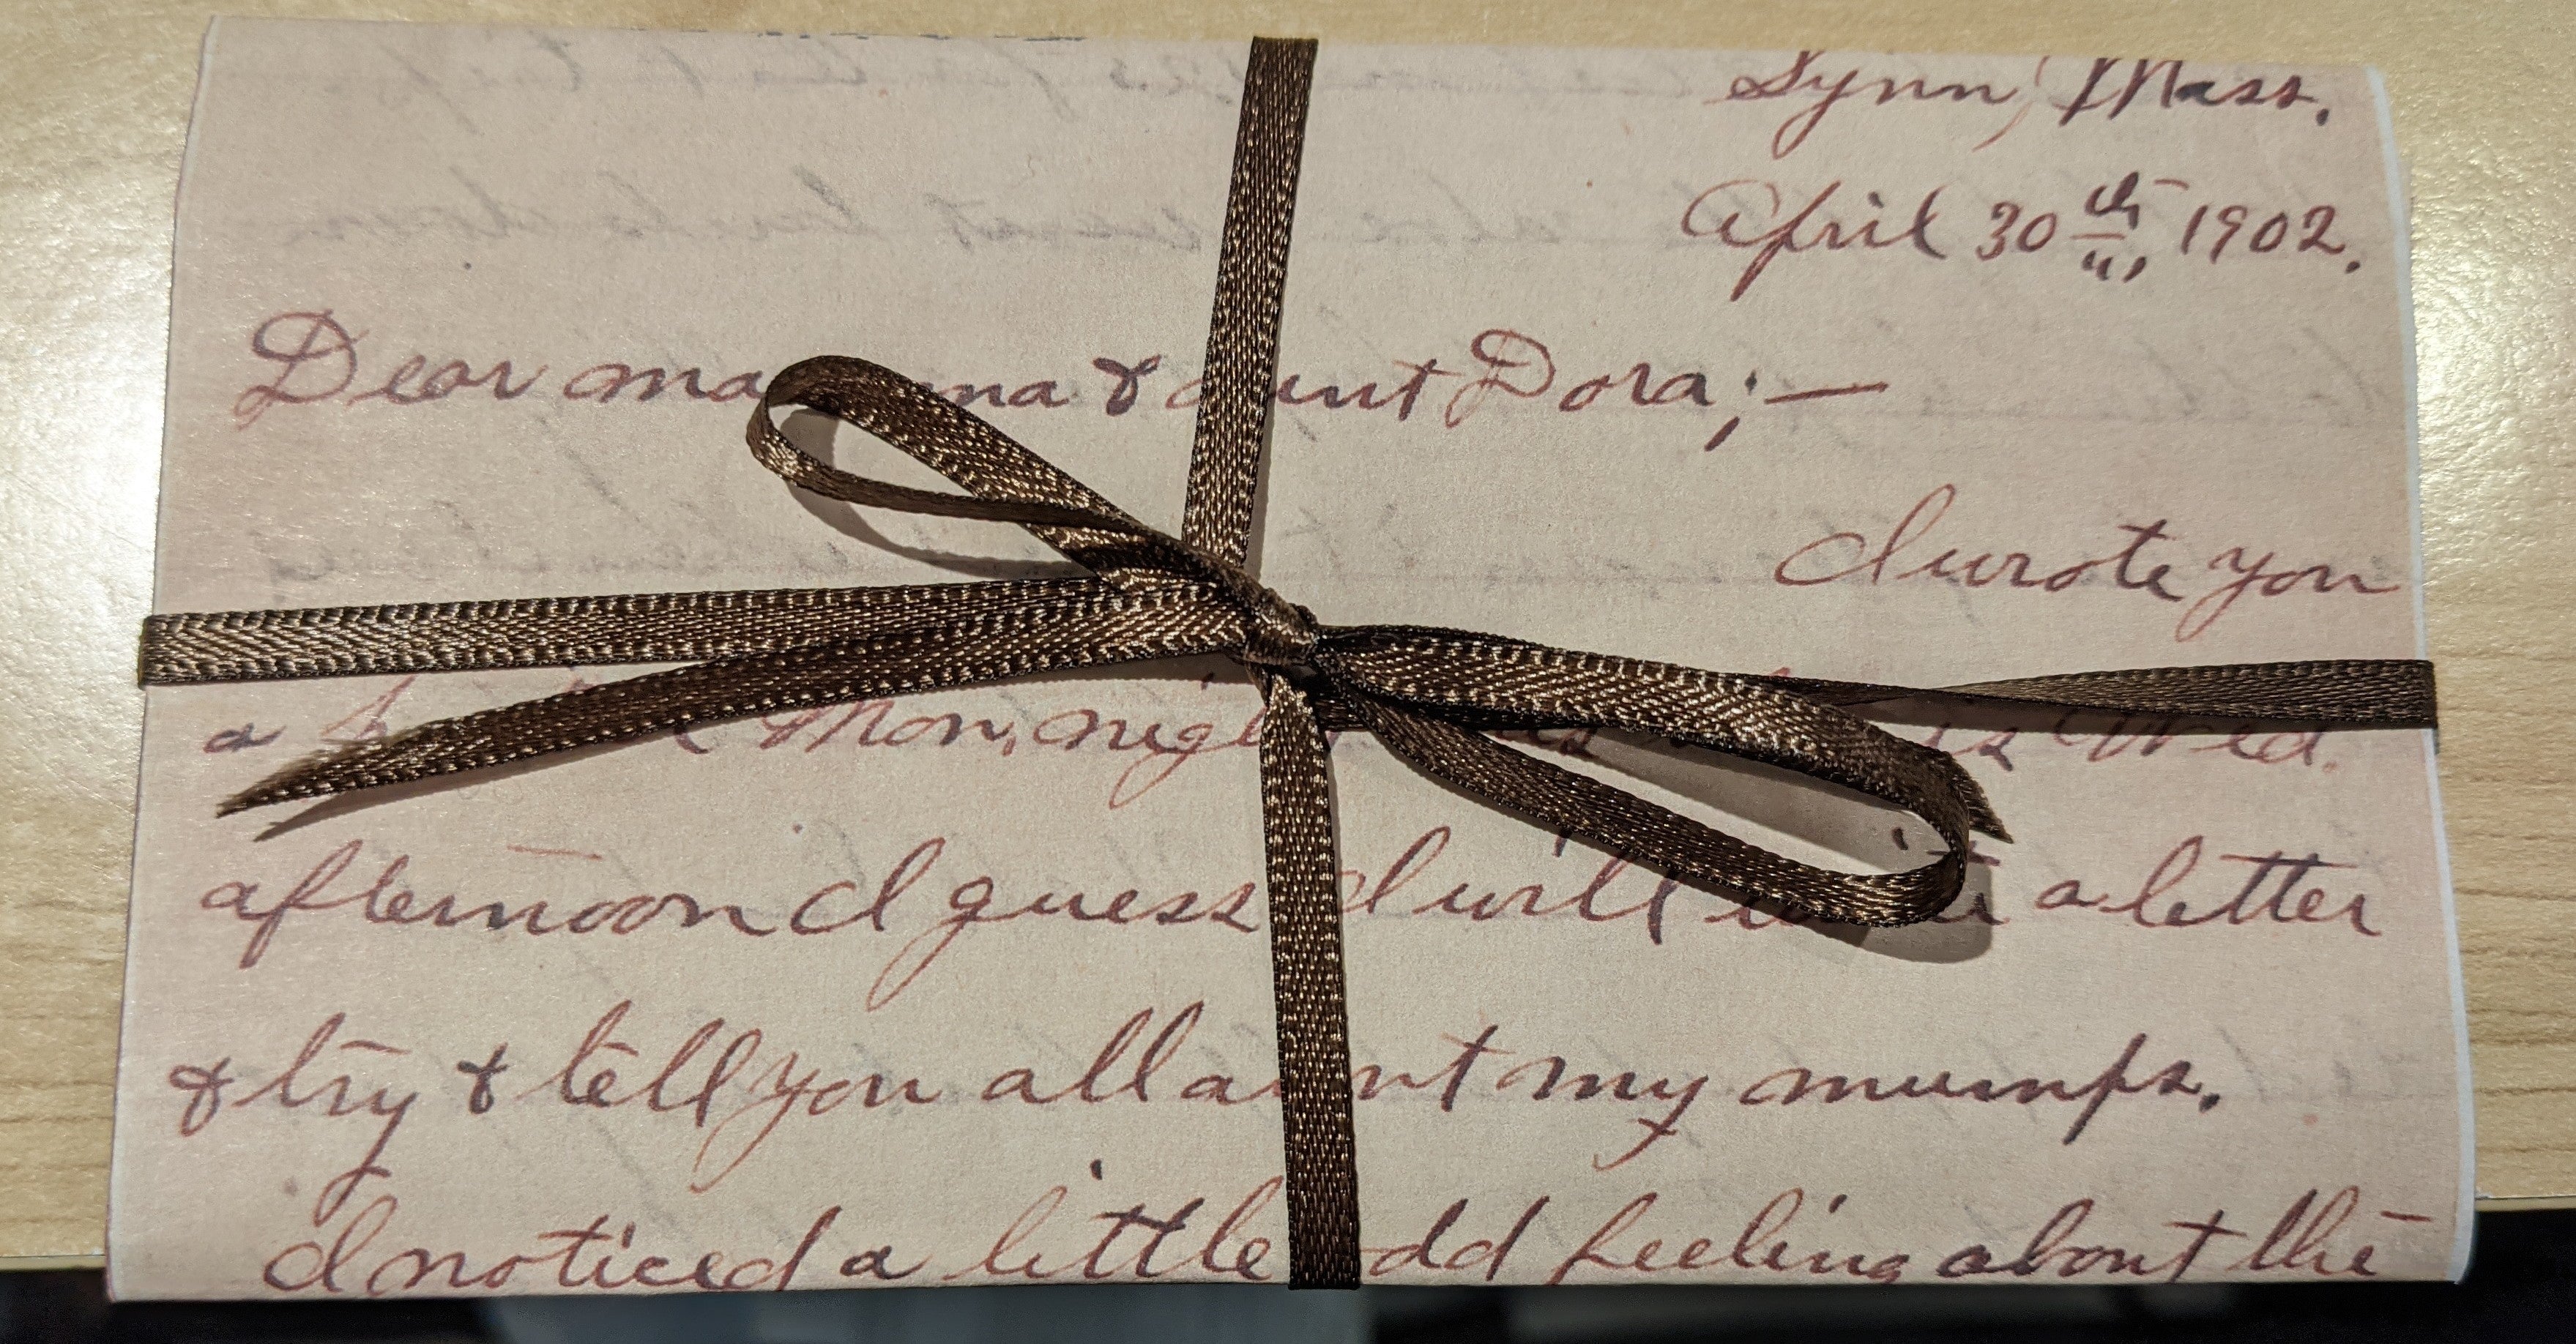 Lynn, Mass.
April 30th, 1902.
Dear mamma & aunt Dora;—
I wrote you
a Mon. night is Wed.
afternoon I guess I will write a letter
& try & tell you all about my mumps.
I noticed a little odd feeling about the